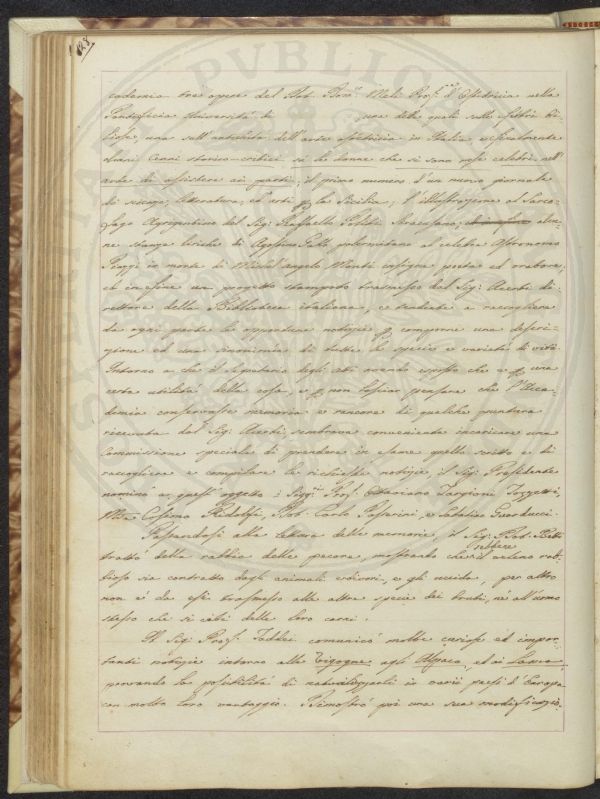 128
cademia tre opere del Dot. Dom.co Meli Prof.re d'Ostetricia nella
Pontificia Università di una delle quali sulle febbri bi-
liose, una sull'antichità dell'arte ostetricia in Italia, e finalmente
alcuni Cenni storico-critici su le donne che si sono rese celebri nell'
arte di assistere ai parti; il primo numero d'un nuovo giornale
di scienze, letteratura, ed arti p la Sicilia; l'illustrazione al Sarco-
fago Agrigentino del Sig: Raffaello Politi Siracusano; alcu-
ne stanze liriche di Agostino Gallo palermitano al celebre Astronomo
Piazzi in morte di Michel'angelo Monti insigne poeta ed oratore;
ed in fine un progetto stampato trasmesso dal Sig: Acerbi di-
rettore della Biblioteca italiana, e tendente a raccogliere
da ogni parte le opportune notizie p comporre una descri-
zione ed una sinonimia di tutte le specie e varietà di viti.
Intorno a che il Segretario degli atti avendo esposto che e p una
certa utilità della cosa, e p non lasciar pensare che l'Acca-
demia conservasse memoria e rancore di qualche puntura
ricevuta dal Sig: Acerbi, sembrava conveniente incaricare una
Commissione speciale di prendere in esame quello scritto e di
raccogliere e compilare le richieste notizie, il Sig: Presidente
nominò a quest'oggetto i Sigg.ri Prof.ri Ottaviano Targioni Tozzetti,
Mse. Cosimo Ridolfi, Dot. Carlo Passerini, e Sabatino Guarducci.
Passandosi alla lettura delle memorie, il Sig: Dot. Betti
trattò della rabbia delle pecore, mostrando che sebbene il veleno rab-
bioso sia contratto dagli animali erbivori, e gli uccida, per altro
non è da essi trasmesso alle altre specie dei bruti, nè all'uomo
stesso che si cibi delle loro carni.
Il Sig: Prof.re Taddei comunicò molte curiose ed impor-
tanti notizie intorno alle Vigogne agli Alpaca, ed ai Lama
provando la possibilità di naturalizzarli in varii paesi d'Europa
con molto loro vantaggio. Dimostrò poi una sua modificazio-